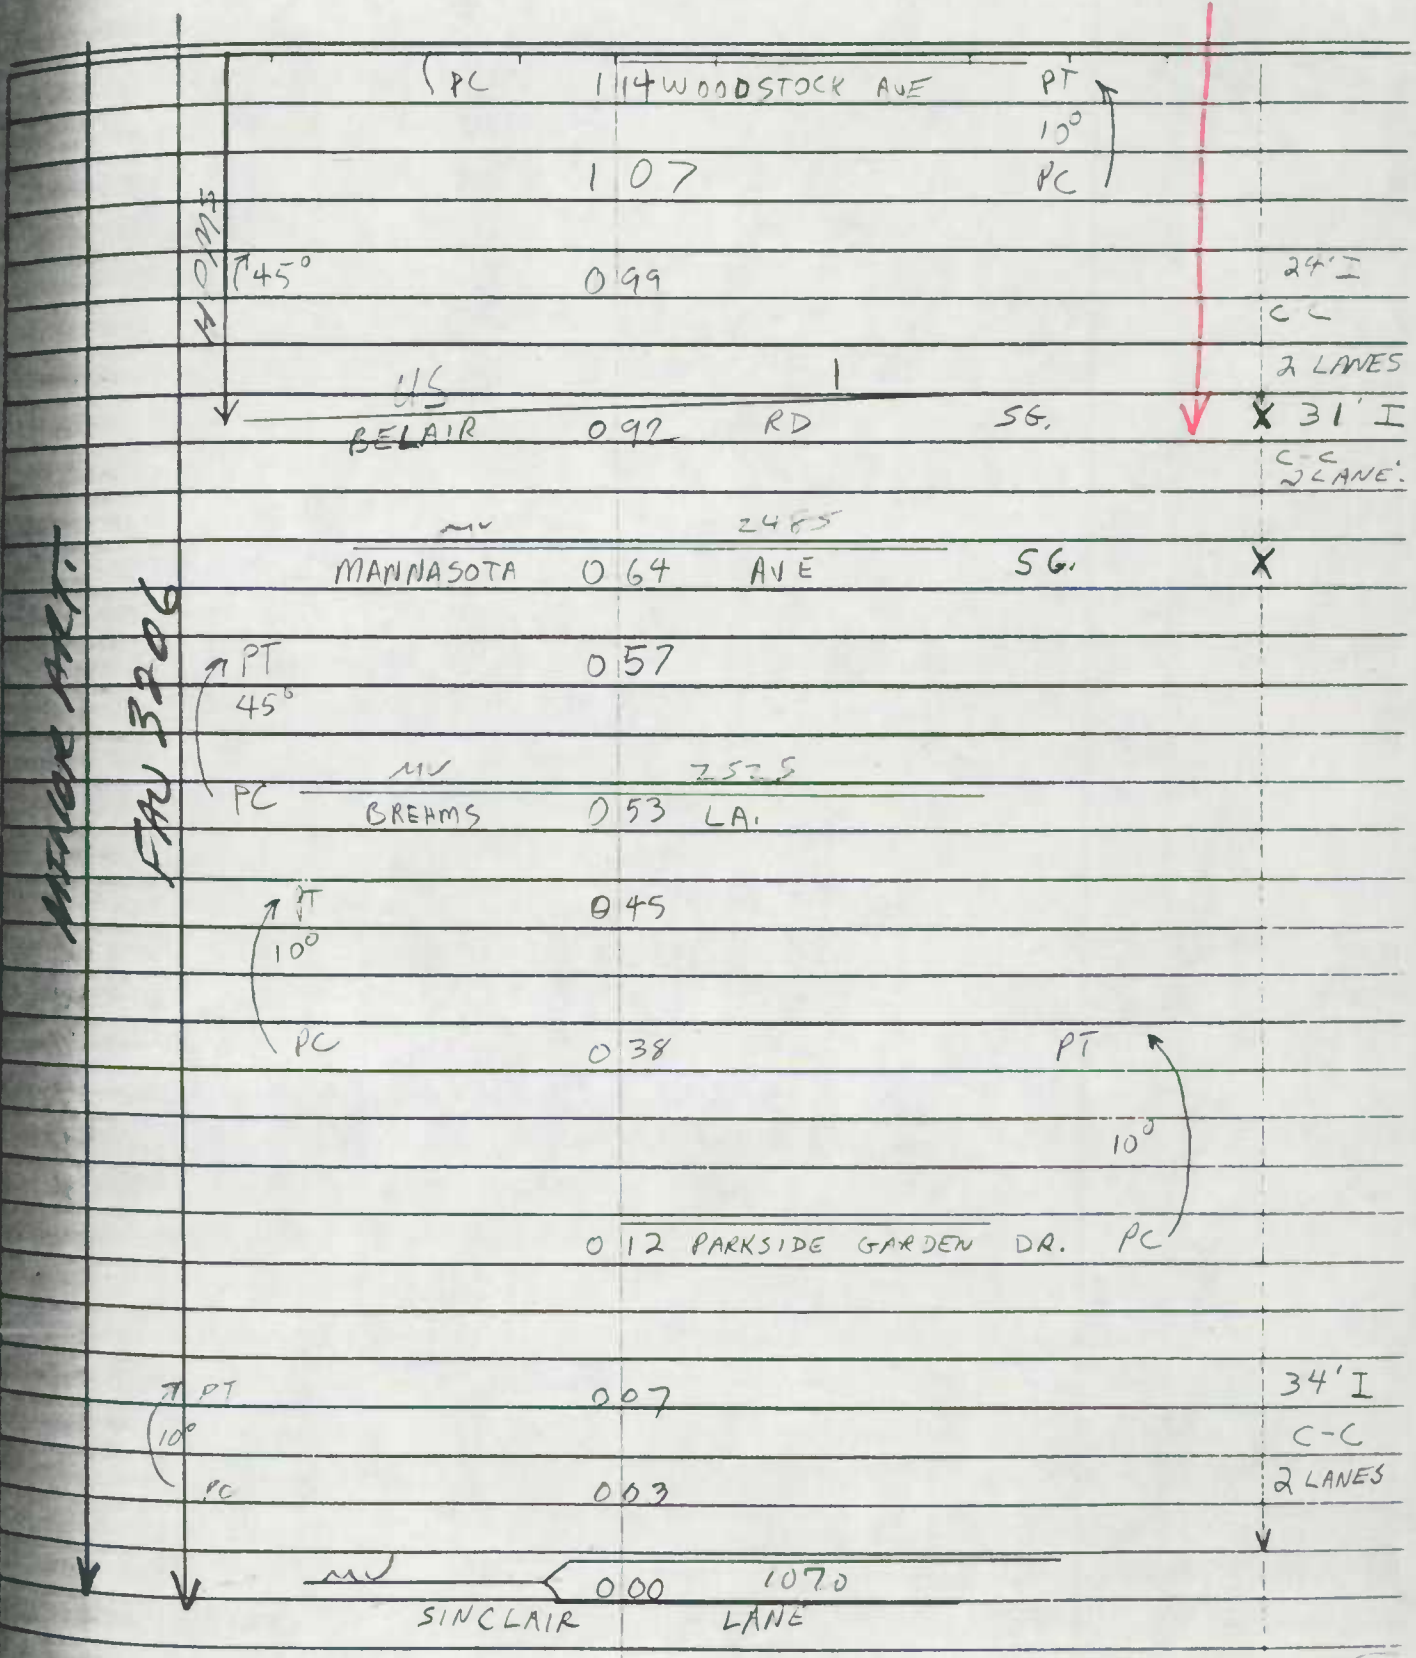 PC 1 14 WOODSTOCK AVE PT
10°
1 07 PC
45° 0 99 24' I
C C
2 LANES
US 1
BELAIR 0 92 RD SG. X 31' I
C-C
2 LANE.
MU 2485
MANNASOTA 0 64 AVE SG. X
PT 0 57
45°
MU 2525
PC BREHMS 0 53 LA.
PT 0 45
10°
PC 0 38 PT
10°
0 12 PARKSIDE GARDEN DR. PC
PT 0 07 34' I
10° C-C
PC 0 03 2 LANES
MU 0 00 1070
SINCLAIR LANE
MINOR ART.
FAU 3206